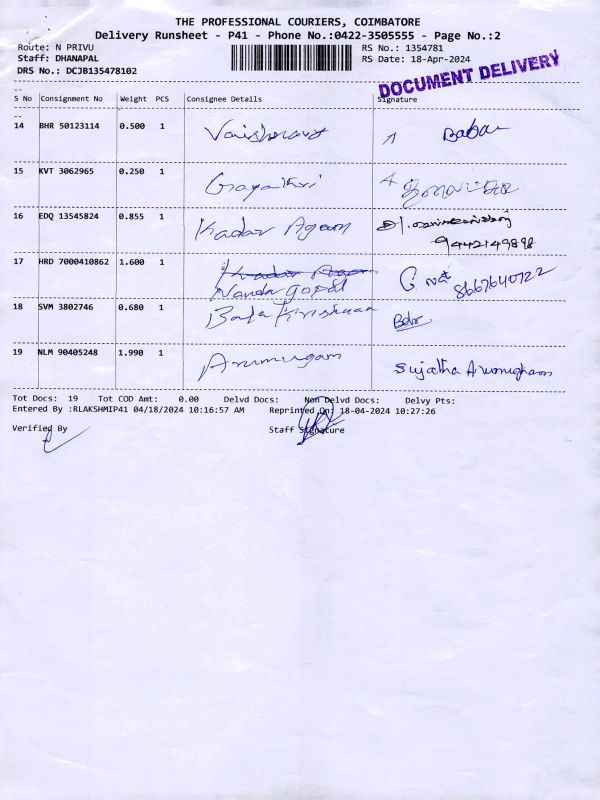 THE PROFESSIONAL COURIERS, COIMBATORE
Delivery Runsheet - P41 - Phone No.:0422-3505555 - Page No.:2
Route: N PRIVU RS No.: 1354781
Staff: DHANAPAL RS Date: 18-Apr-2024
DRS No.: DCJB135478102
DOCUMENT DELIVERY
S No Consignment No Weight PCS Consignee Details Signature
14 BHR 50123114 0.500 1 Vaishnavs Babu
15 KVT 3062965 0.250 1 Gayathri
16 EDQ 13545824 0.855 1 Kadar Agam
9442149898
17 HRD 7000410862 1.600 1 Nanda gopal 8667640722
18 SVM 3802746 0.680 1 Bala Krishnan
19 NLM 90405248 1.990 1 Arumugam Sujatha Arumugham
Tot Docs: 19 Tot COD Amt: 0.00 Delvd Docs: Non Delvd Docs: Delvy Pts:
Entered By :RLAKSHMIP41 04/18/2024 10:16:57 AM Reprinted On: 18-04-2024 10:27:26
Verified By Staff Signature